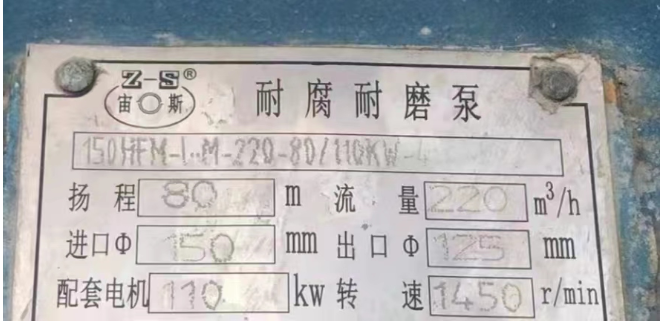 Z-S®
宙 斯
耐腐耐磨泵
150HFM-I-M-220-80/110KW-4
扬程 80 m 流量 220 m³/h
进口Φ 150 mm 出口Φ 125 mm
配套电机 110 kw 转速 1450 r/min